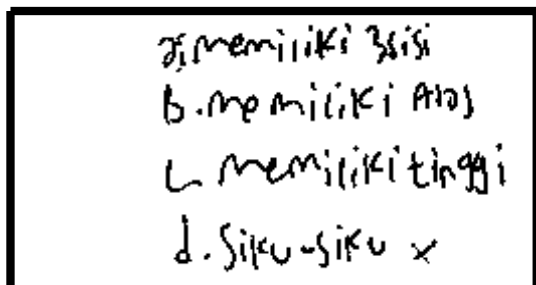 a. memiliki 3 sisi
B. memiliki Alas
C. memiliki tinggi
d. Siku-siku x